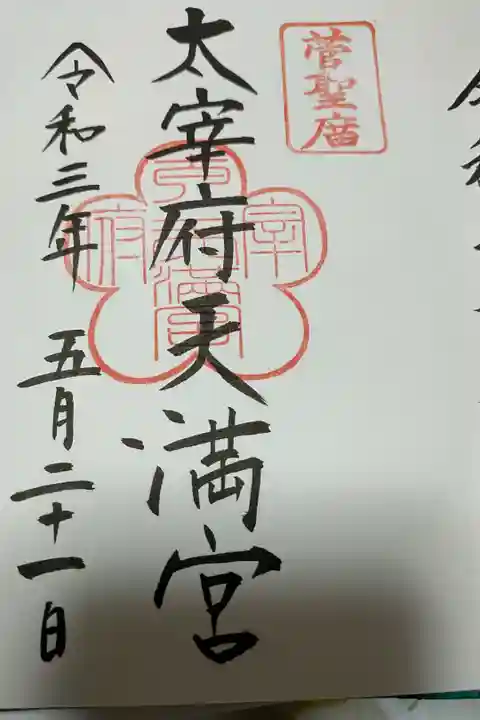 菅聖庿
太宰府天満宮
令和三年 五月二十一日